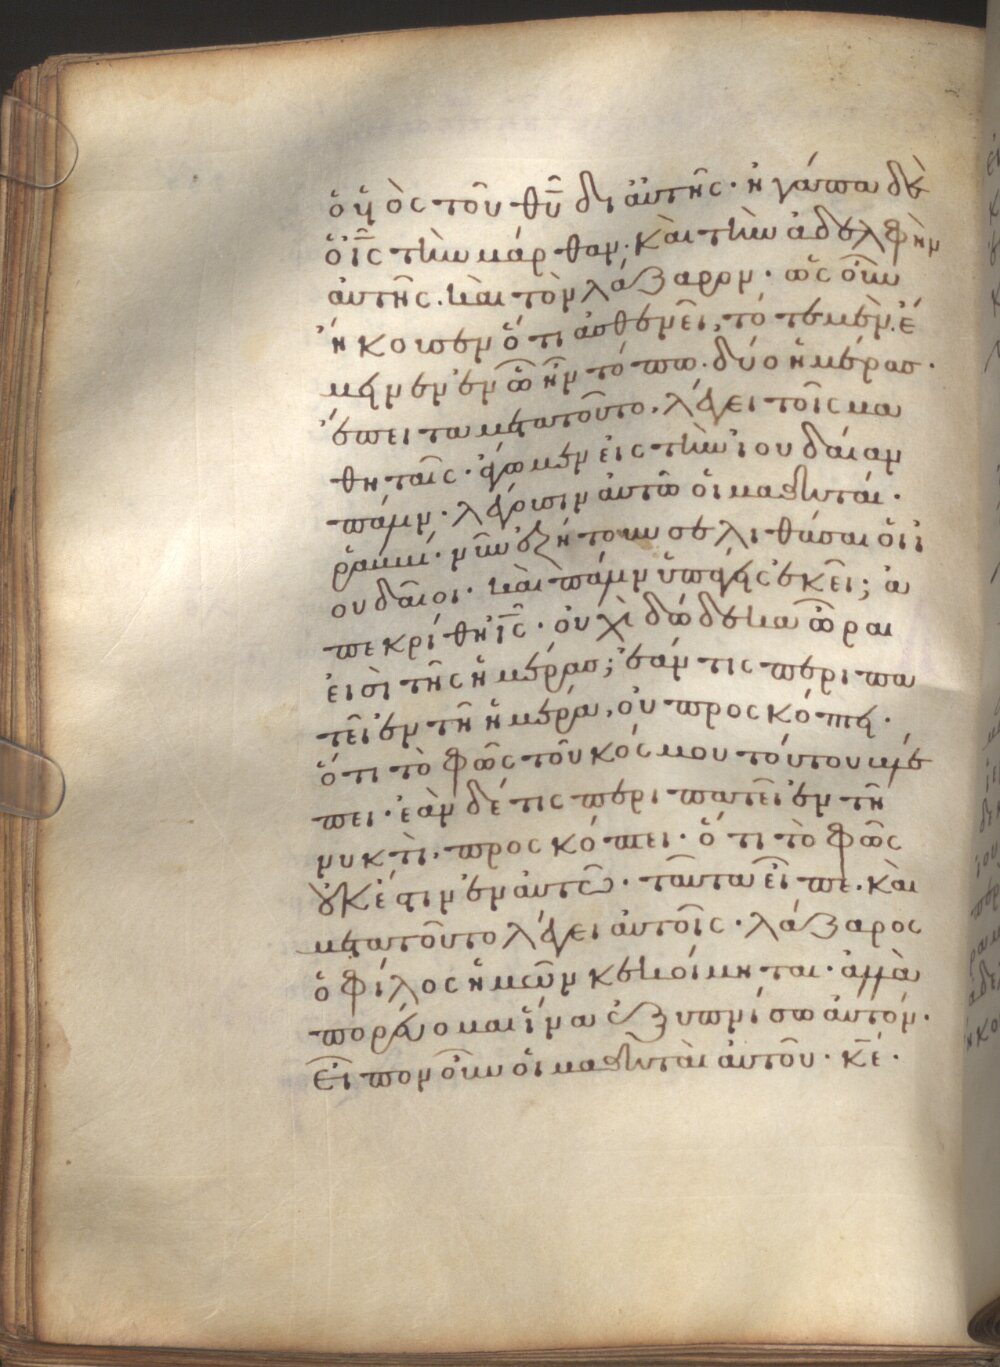 ὁ ὑ̅ὸς τοῦ θ̅υ̅ δι αὐτῆς· ἠγάπα δὲ
ὁ ι̅ς̅ τὴν μάρθαν· καὶ τὴν ἀδελφὴν
αὐτῆς. καὶ τὸν λάζαρον· ὡς οὖν
ἤκουσεν ὅτι ἀσθενεῖ, τότε μὲν ἔ
μεινεν ἐν ᾧ ἦν τόπω· δύο ἡμέρας·
ἔπειτα μετα τοῦτο, λέγει τοῖς μα
θηταῖς· ἄγωμεν εἰς τὴν ἰουδαίαν
πάλιν· λέγουσιν αὐτῶ οἱ μαθηταί·
ῥαββί· νῦν ἐζήτουν σε λιθάσαι οἱ ἰ
ουδαῖοι· καὶ πάλιν ὑπάγεις ἐκεῖ; ἀ
πεκρίθη ι̅ς̅· οὐχὶ δώδεκα ὧραι
εἰσὶ τῆς ἡμέρας; ἐάν τις περιπα
τεῖ ἐν τῆ ἡμέρα, οὐ προσκόπτει·
ὅτι τὸ φῶς τοῦ κόσμου τούτου βλέ
πει· ἐὰν δέ τις περιπατεῖ ἐν τῆ
νυκτὶ, προσκόπτει· ὅτι τὸ φῶς
οὐκ ἔστιν ἐν αὐτῶ· ταῦτα εἶπε· καὶ
μετα τοῦτο λέγει αὐτοῖς· λάζαρος
ὁ φίλος ἡμῶν κεκοίμηται· ἀλλὰ
πορεύομαι ἵνα ἐξυπνίσω αὐτόν·
εἶπον οὖν οἱ μαθηταὶ αὐτοῦ· κ̅ε̅·